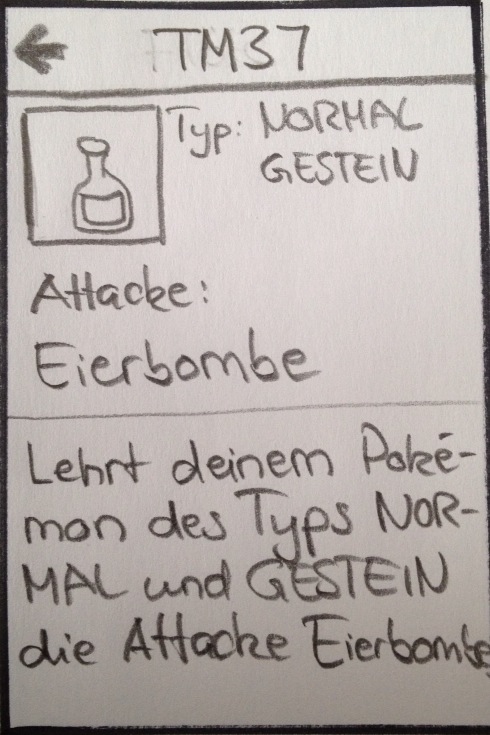 TM37
Typ: NORMAL
GESTEIN
Attacke:
Eierbombe
Lehrt deinem Poké-
mon des Typs NOR-
MAL und GESTEIN
die Attacke Eierbombe